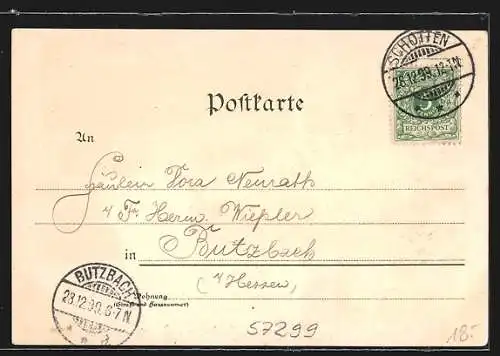 SCHOTTEN
28.12.99.12-1N.
5
REICHSPOST
Postkarte
An
Fräulein Dora Neurath
Fr. Herm. Wießler
in Butzbach
Hessen
BUTZBACH
28.12.99.6-7N
Wohnung
(Straße und Hausnummer)
57299
18.-